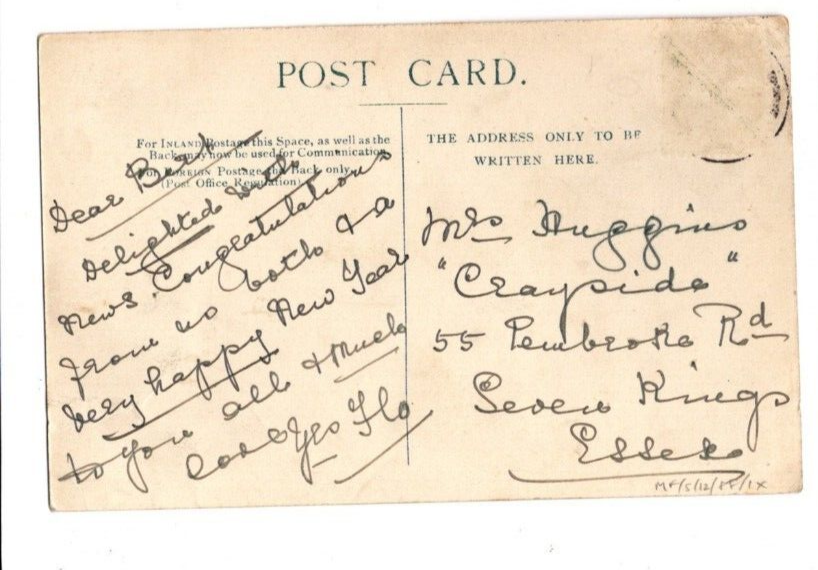 POST CARD.
For INLAND Postage this Space, as well as the
Back may now be used for Communication.
For FOREIGN Postage the Back only.
(Post Office Regulation).
THE ADDRESS ONLY TO BE
WRITTEN HERE.
Dear
Delighted with
news. Congratulations
from us both & a
very happy New Year
to you all & Much
love Yrs Flo
Mrs Huggins
"Crayside"
55 Pembroke Rd
Seven Kings
Essex